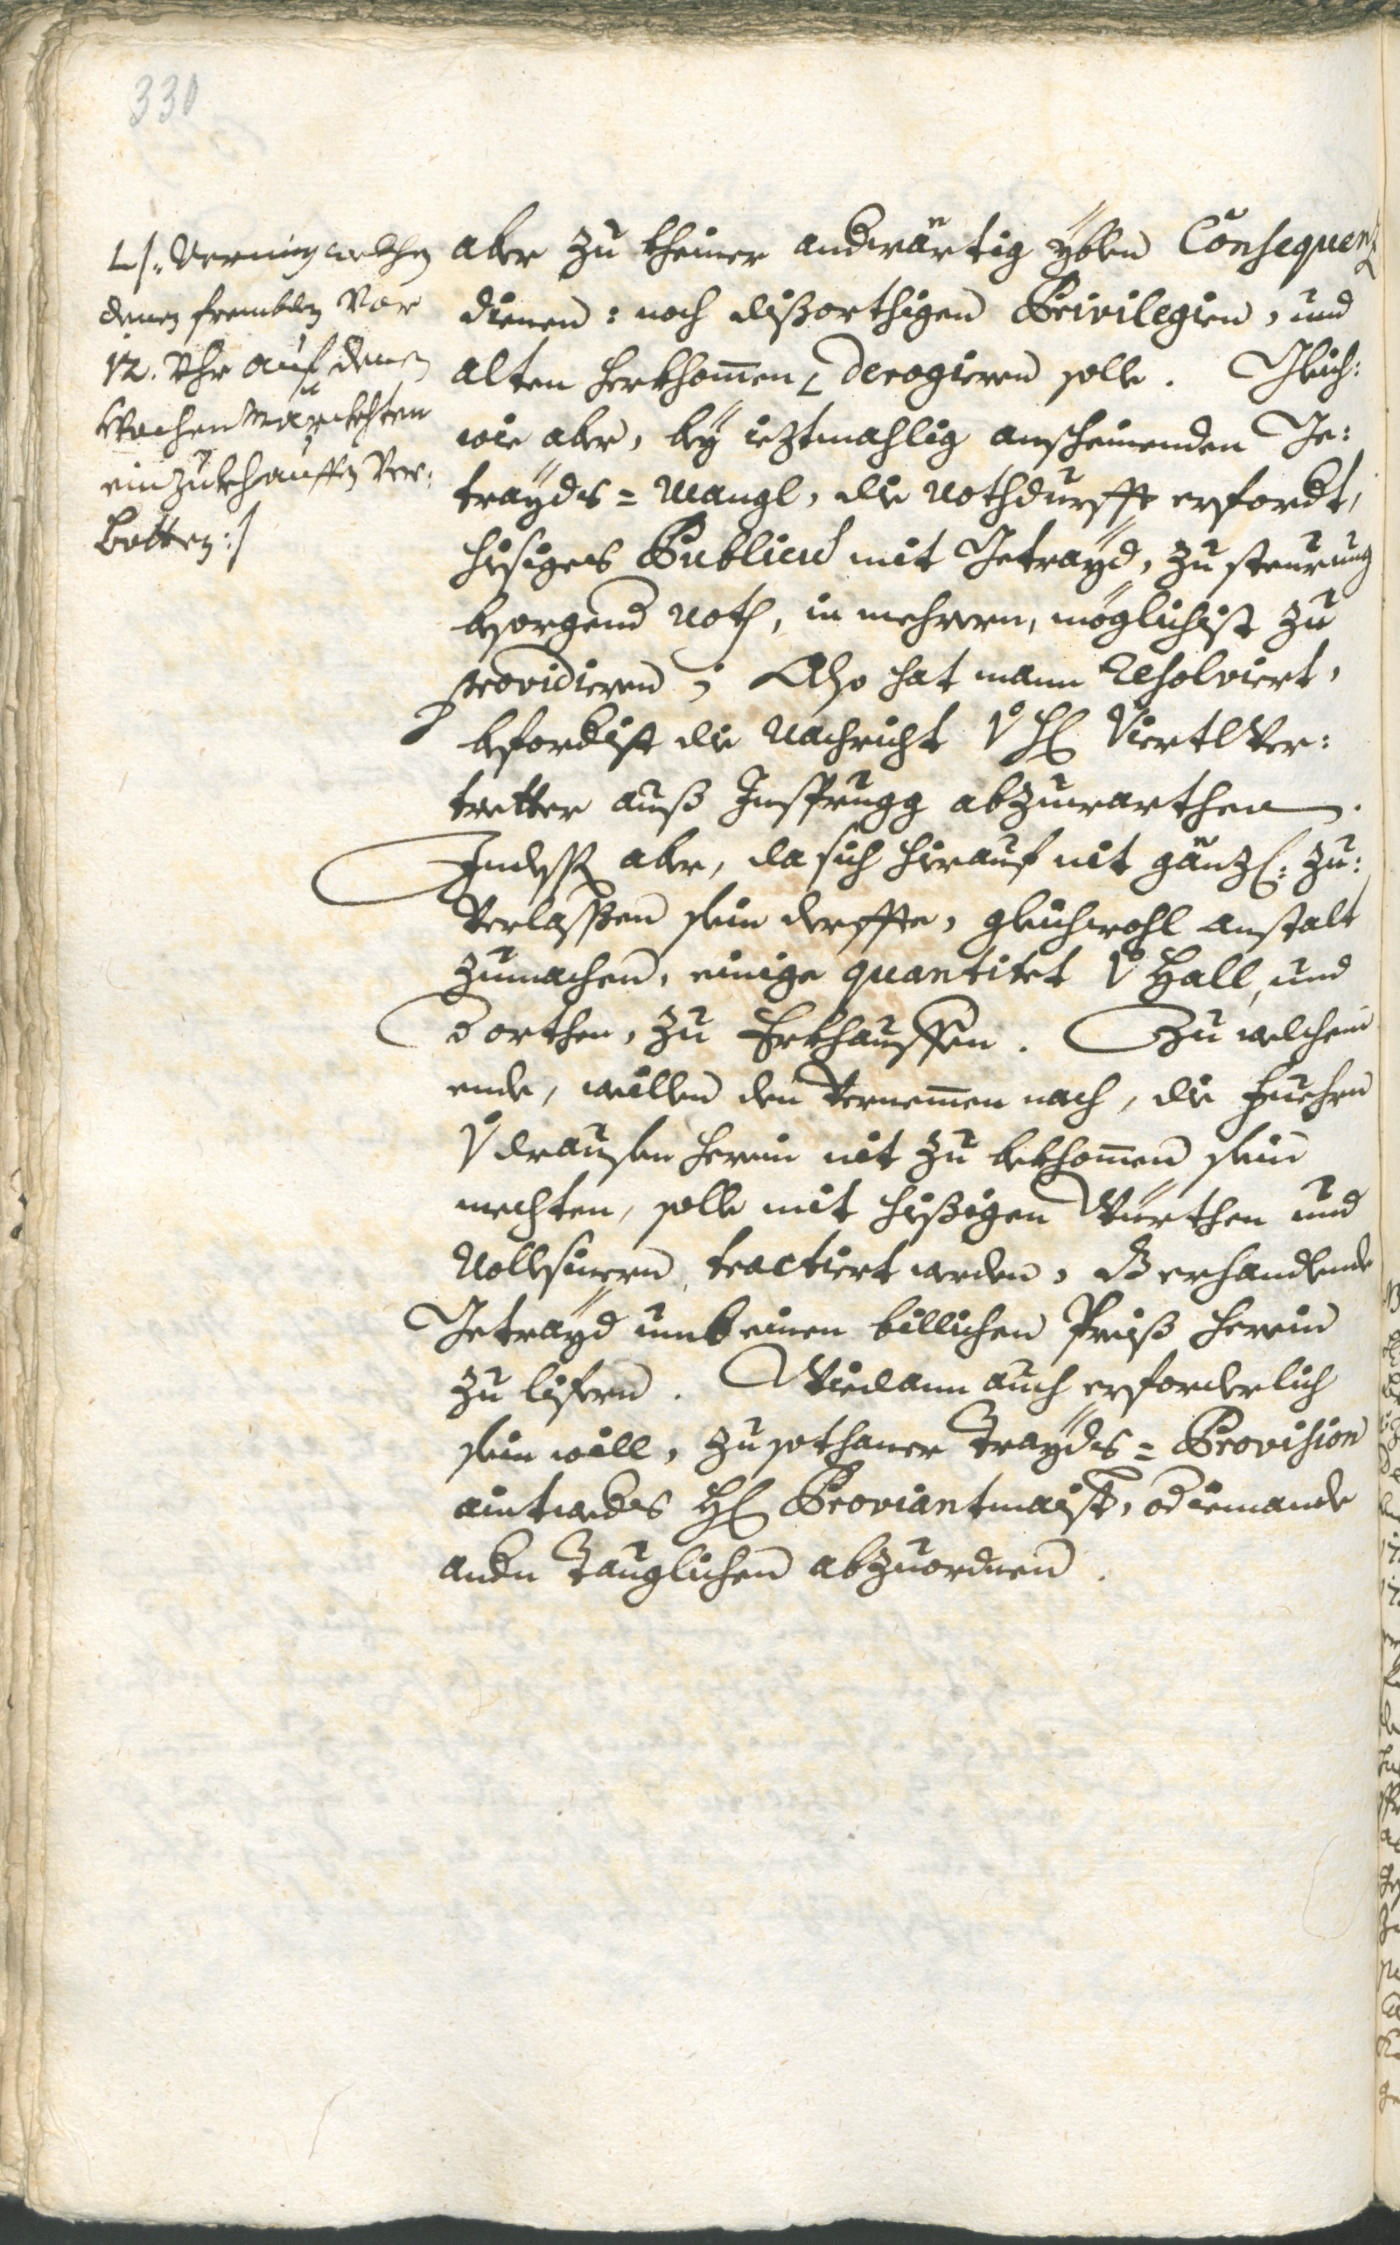 330
L/: Vermög welchen
denen frembden vor
12. Uhr auf denen
Wochen Märckhten
einzukhauffen ver:
botten :/
aber zu kheiner andwärtig yblen Consequenz
dienen: noch dißorthigen Privilegien, und
alten herkhom̄en L derogieren solle. Gleich:
wie aber, bey ieztmahlig anscheinenden Ge:
traydts=Mangl, die Nothdurfft erfordt,
hisiges Publicum mit Getrayd, zu steurung
besorgend Noth, in mehrern, möglichist zu
providieren; Also hat mann Resolviert,
befordist die Nachricht v H Viertl Ver:
tretter auß Insprugg abzuwarthen.
Indessen aber, da sich hierauf nit gänzl: zu:
verlassen sein derffte, gleichwohl anstalt
zumachen, einige quantitet v Hall, und
dorthen, zu Erkhauffen. Zu welchem
ende, weillen den vernem̄en nach, die Fuehren
v drausen herein nit zu bekhom̄en sein
mechten, solle mit hißigen Würthen und
Vollsierern tractiert werden, dz erhandlende
Getrayd umb einen billichen Preiß herein
zu lifern. Wiedann auch erforderlich
sein will, zu sothaner Traydts=Provision
aintweders H Proviantmaister, od iemande
andn Tauglichen abzuordnen.